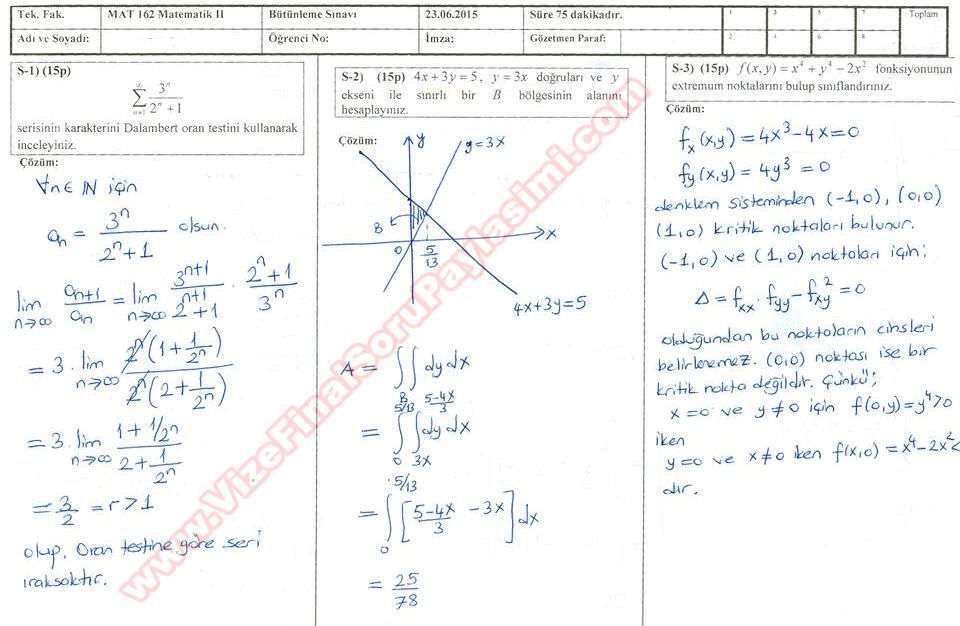 Tek. Fak. MAT 162 Matematik II Bütünleme Sınavı 23.06.2015 Süre 75 dakikadır. 1 3 5 7 Toplam
Adı ve Soyadı: Öğrenci No: İmza: Gözetmen Paraf: 2 4 6 8
S-1) (15p)
∑_{n=1}^{∞} 3^n / (2^n + 1)
serisinin karakterini Dalambert oran testini kullanarak
inceleyiniz.
Çözüm:
∀n∈IN için
a_n = 3^n / (2^n+1) olsun.
lim_{n→∞} a_{n+1}/a_n = lim_{n→∞} 3^{n+1}/(2^{n+1}+1) · (2^n+1)/3^n
= 3. lim_{n→∞} 2^n(1+1/2^n) / 2^n(2+1/2^n)
= 3. lim_{n→∞} (1+1/2^n) / (2+1/2^n)
= 3/2 = r > 1
olup, Oran testine göre seri
ıraksaktır.
S-2) (15p) 4x+3y=5, y=3x doğruları ve y
ekseni ile sınırlı bir B bölgesinin alanını
hesaplayınız.
Çözüm:
y
y=3x
B
0
5/13
x
4x+3y=5
A = ∬_B dy dx
= ∫_0^{5/13} ∫_{3x}^{(5-4x)/3} dy dx
= ∫_0^{5/13} [(5-4x)/3 - 3x] dx
= 25/78
S-3) (15p) f(x,y)=x^4+y^4-2x^2 fonksiyonunun
extremum noktalarını bulup sınıflandırınız.
Çözüm:
f_x(x,y) = 4x^3-4x=0
f_y(x,y) = 4y^3 = 0
denklem sisteminden (-1,0), (0,0)
(1,0) kritik noktaları bulunur.
(-1,0) ve (1,0) noktaları için;
Δ = f_xx . f_yy - f_xy^2 = 0
olduğundan bu noktaların cinsleri
belirlenemez. (0,0) noktası ise bir
kritik nokta değildir. Çünkü;
x=0 ve y≠0 için f(0,y)=y^4>0
iken
y=0 ve x≠0 iken f(x,0)=x^4-2x^2<
dır.
www.VizeFinalSoruPaylasimi.com